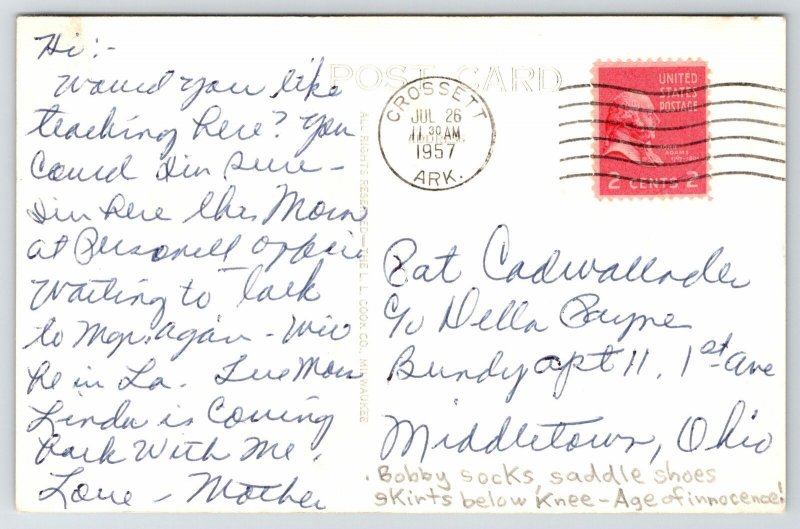 Hi:-
Would you like
teaching here? You
Could I'm sure -
I'm here this Morn
at Personell Office
Waiting to talk
to Mgr. again - Will
be in La. Tues Morn
Linda is Coming
back With Me.
Love - Mother
POST CARD
ALL RIGHTS RESERVED—THE L. L. COOK CO., MILWAUKEE
CROSSETT
JUL 26
11 30 AM
1957
ARK.
UNITED
STATES
POSTAGE
JOHN
ADAMS
2 CENTS 2
Pat Cadwallader
c/o Della Payne
Bundy apt 11, 1st ave
Middletown, Ohio
Bobby socks, saddle shoes
skirts below Knee - Age of innocence!